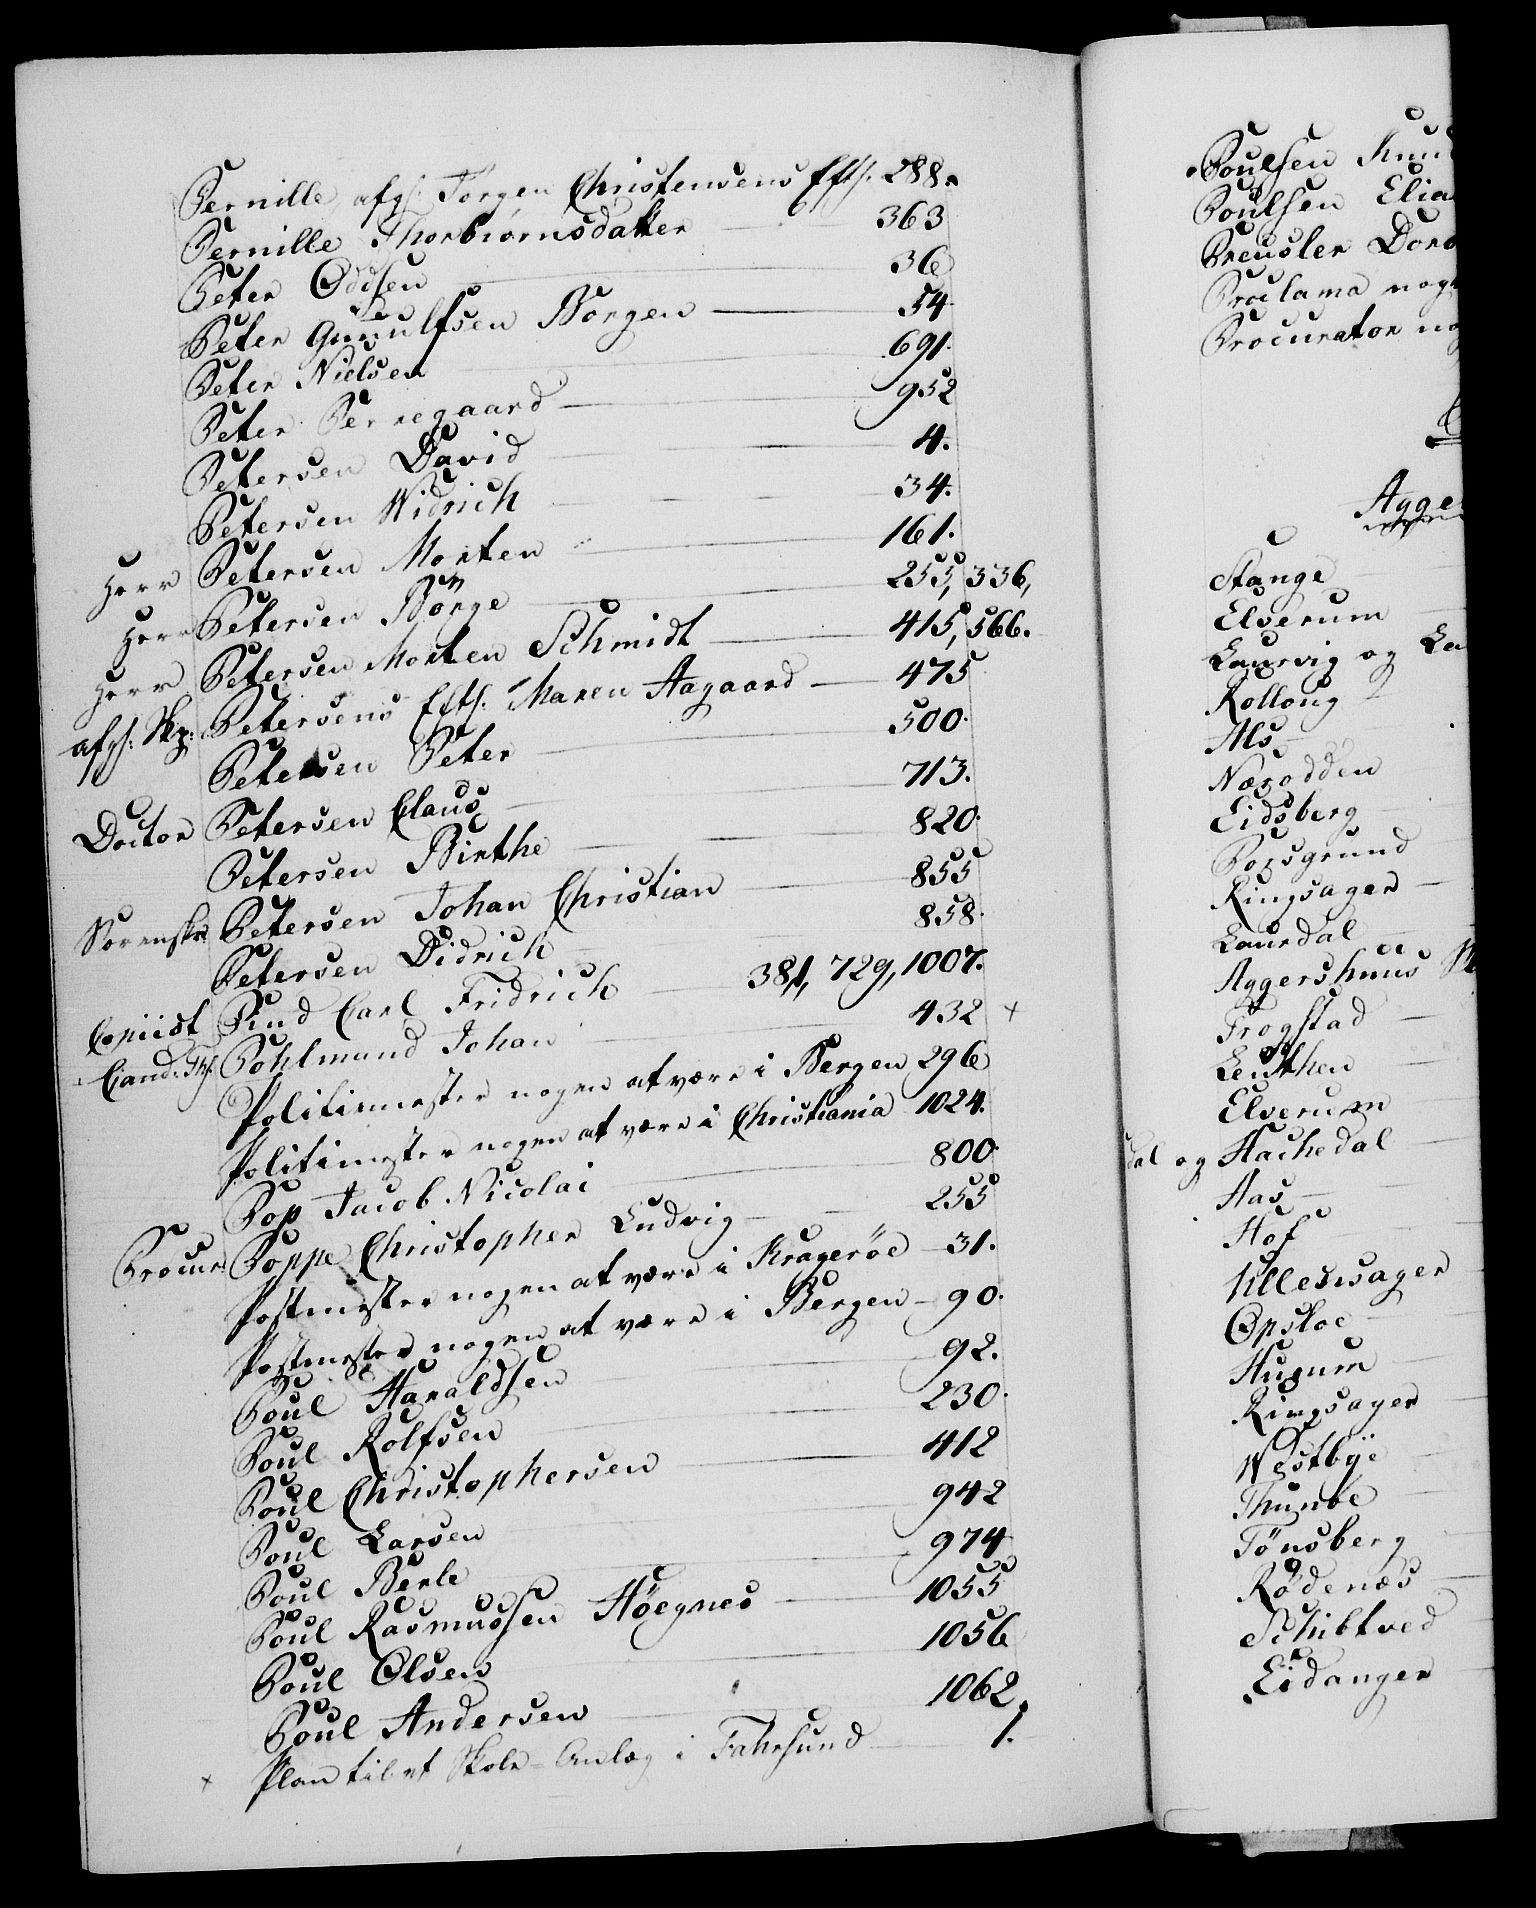 Pernille, afg: Jørgen Christensens Eftl. 288.
Pernille Thorbiørnsdatter 363
Peter Oddsen 36
Peter Gunulfsen Borgen 54
Peter Nielsen 691.
Peter Pernegaard 952
Petersen David 4.
Petersen Widrich 34.
Herr Petersen Morten 161.
Herr Petersen Börge 255, 336,
Herr Petersen Morten Schmidt 415, 566.
afg: Skp: Petersens Eftl. Maren Aagaard 475
Petersen Peter 500.
Doctor Petersen Claus 713.
Petersen Birthe 820.
Sorenskr Petersen Johan Christian 855
Petersen Didrich 858.
Copiist Pind Carl Fridrich 381, 729, 1007.
Cand: Th: Pohlmand Johan 432 +
Politiemester nogen at være i Bergen 296
Politimester nogen at være i Christiania 1024.
Pop Jacob Nicolai 800.
Procur: Poppe Christopher Ludvig 255
Postmester nogen at være i Kragerøe 31.
Postmester nogen at være i Bergen 90.
Poul Haraldsen 92.
Poul Rolfsen 230.
Poul Christophersen 412
Poul Larsen 942
Poul Berle 974
Poul Rasmussen Höegnes 1055
Poul Olsen 1056
Poul Andersen 1062.
+ Plan til et Skole-Anlæg i Fahrsund 1.
Poulsen Knu
Poulsen Elia
Preusler Doro
Proclama nog
Procurator no
Agge
Stange
Elverum
Laurvig og La
Rolloug
Als
Næsodden
Eidsberg
Porsgrund
Ringsager
Laurdal
Aggershuus
Trogstad
Leuthen
Elverum
dal og Hachedal
Aas
Hof
Ullensager
Opsloe
Hurum
Ringsager
Westbye
Thunøe
Tönsberg
Rødenæs
Schibtved
Eidanger